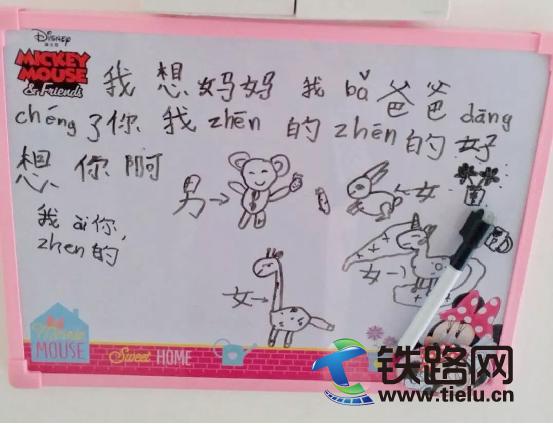 Disney
MICKEY
MOUSE
& Friends
我想妈妈我bǎ爸爸dāng
chéng了你我zhēn的zhēn的好
想你啊
男
女
我ài你,
zhen的
女
女
Minnie
MOUSE
Sweet HOME
铁路网
www.tielu.cn